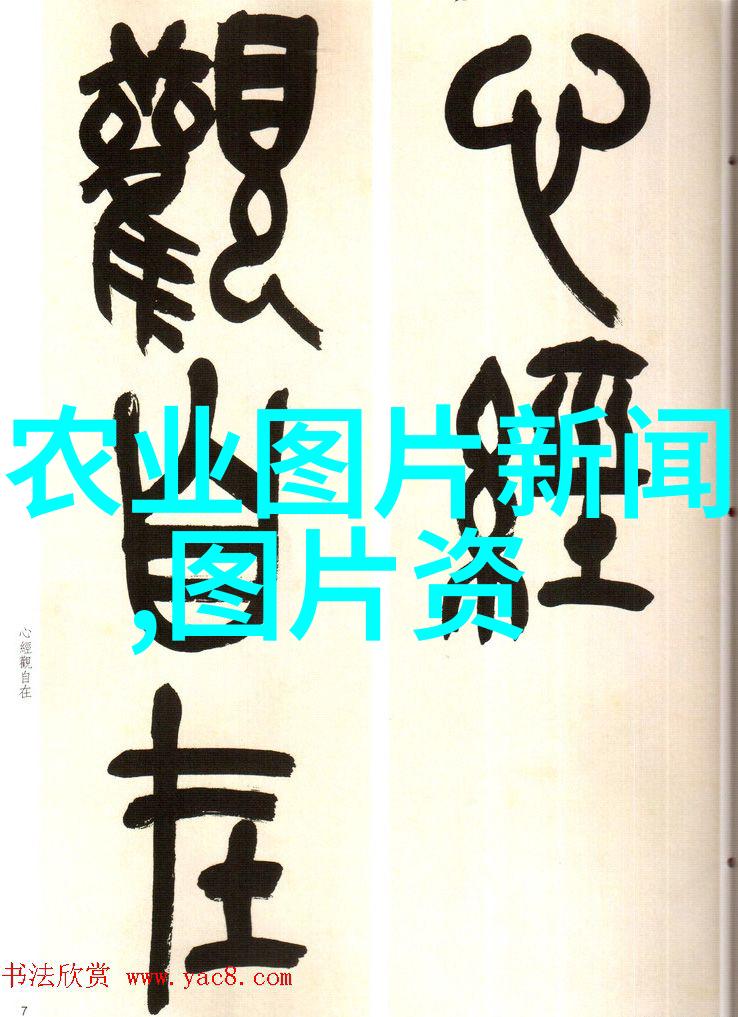 心經
觀自在
农业图片新闻
,图片资
心經觀自在
书法欣赏 www.yac8.com
7